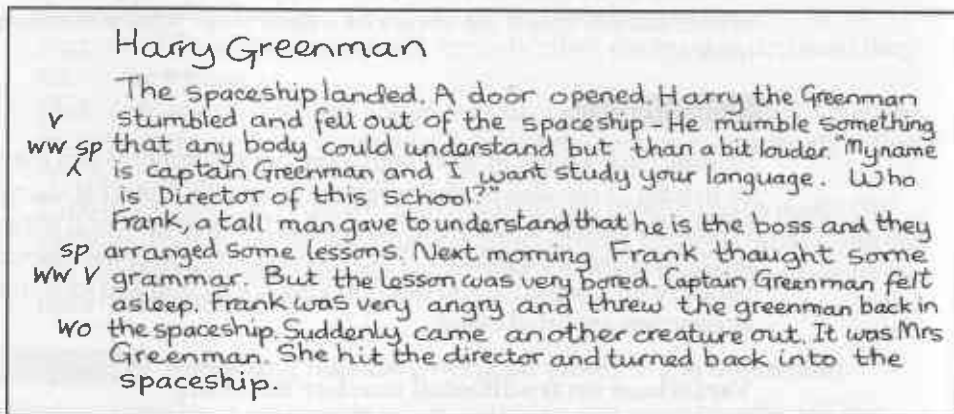 Harry Greenman
The spaceship landed. A door opened. Harry the Greenman
V stumbled and fell out of the spaceship - He mumble something
ww sp that any body could understand but than a bit louder. "My name
⁁ is captain Greenman and I want study your language. Who
is Director of this school?"
Frank, a tall man gave to understand that he is the boss and they
sp arranged some lessons. Next morning Frank thaught some
ww V grammar. But the lesson was very bored. Captain Greenman felt
asleep. Frank was very angry and threw the greenman back in
wo the spaceship. Suddenly came another creature out. It was Mrs
Greenman. She hit the director and turned back into the
spaceship.